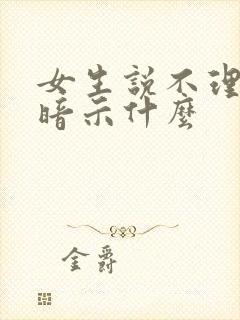 女生説不理
暗示什麼
金爵